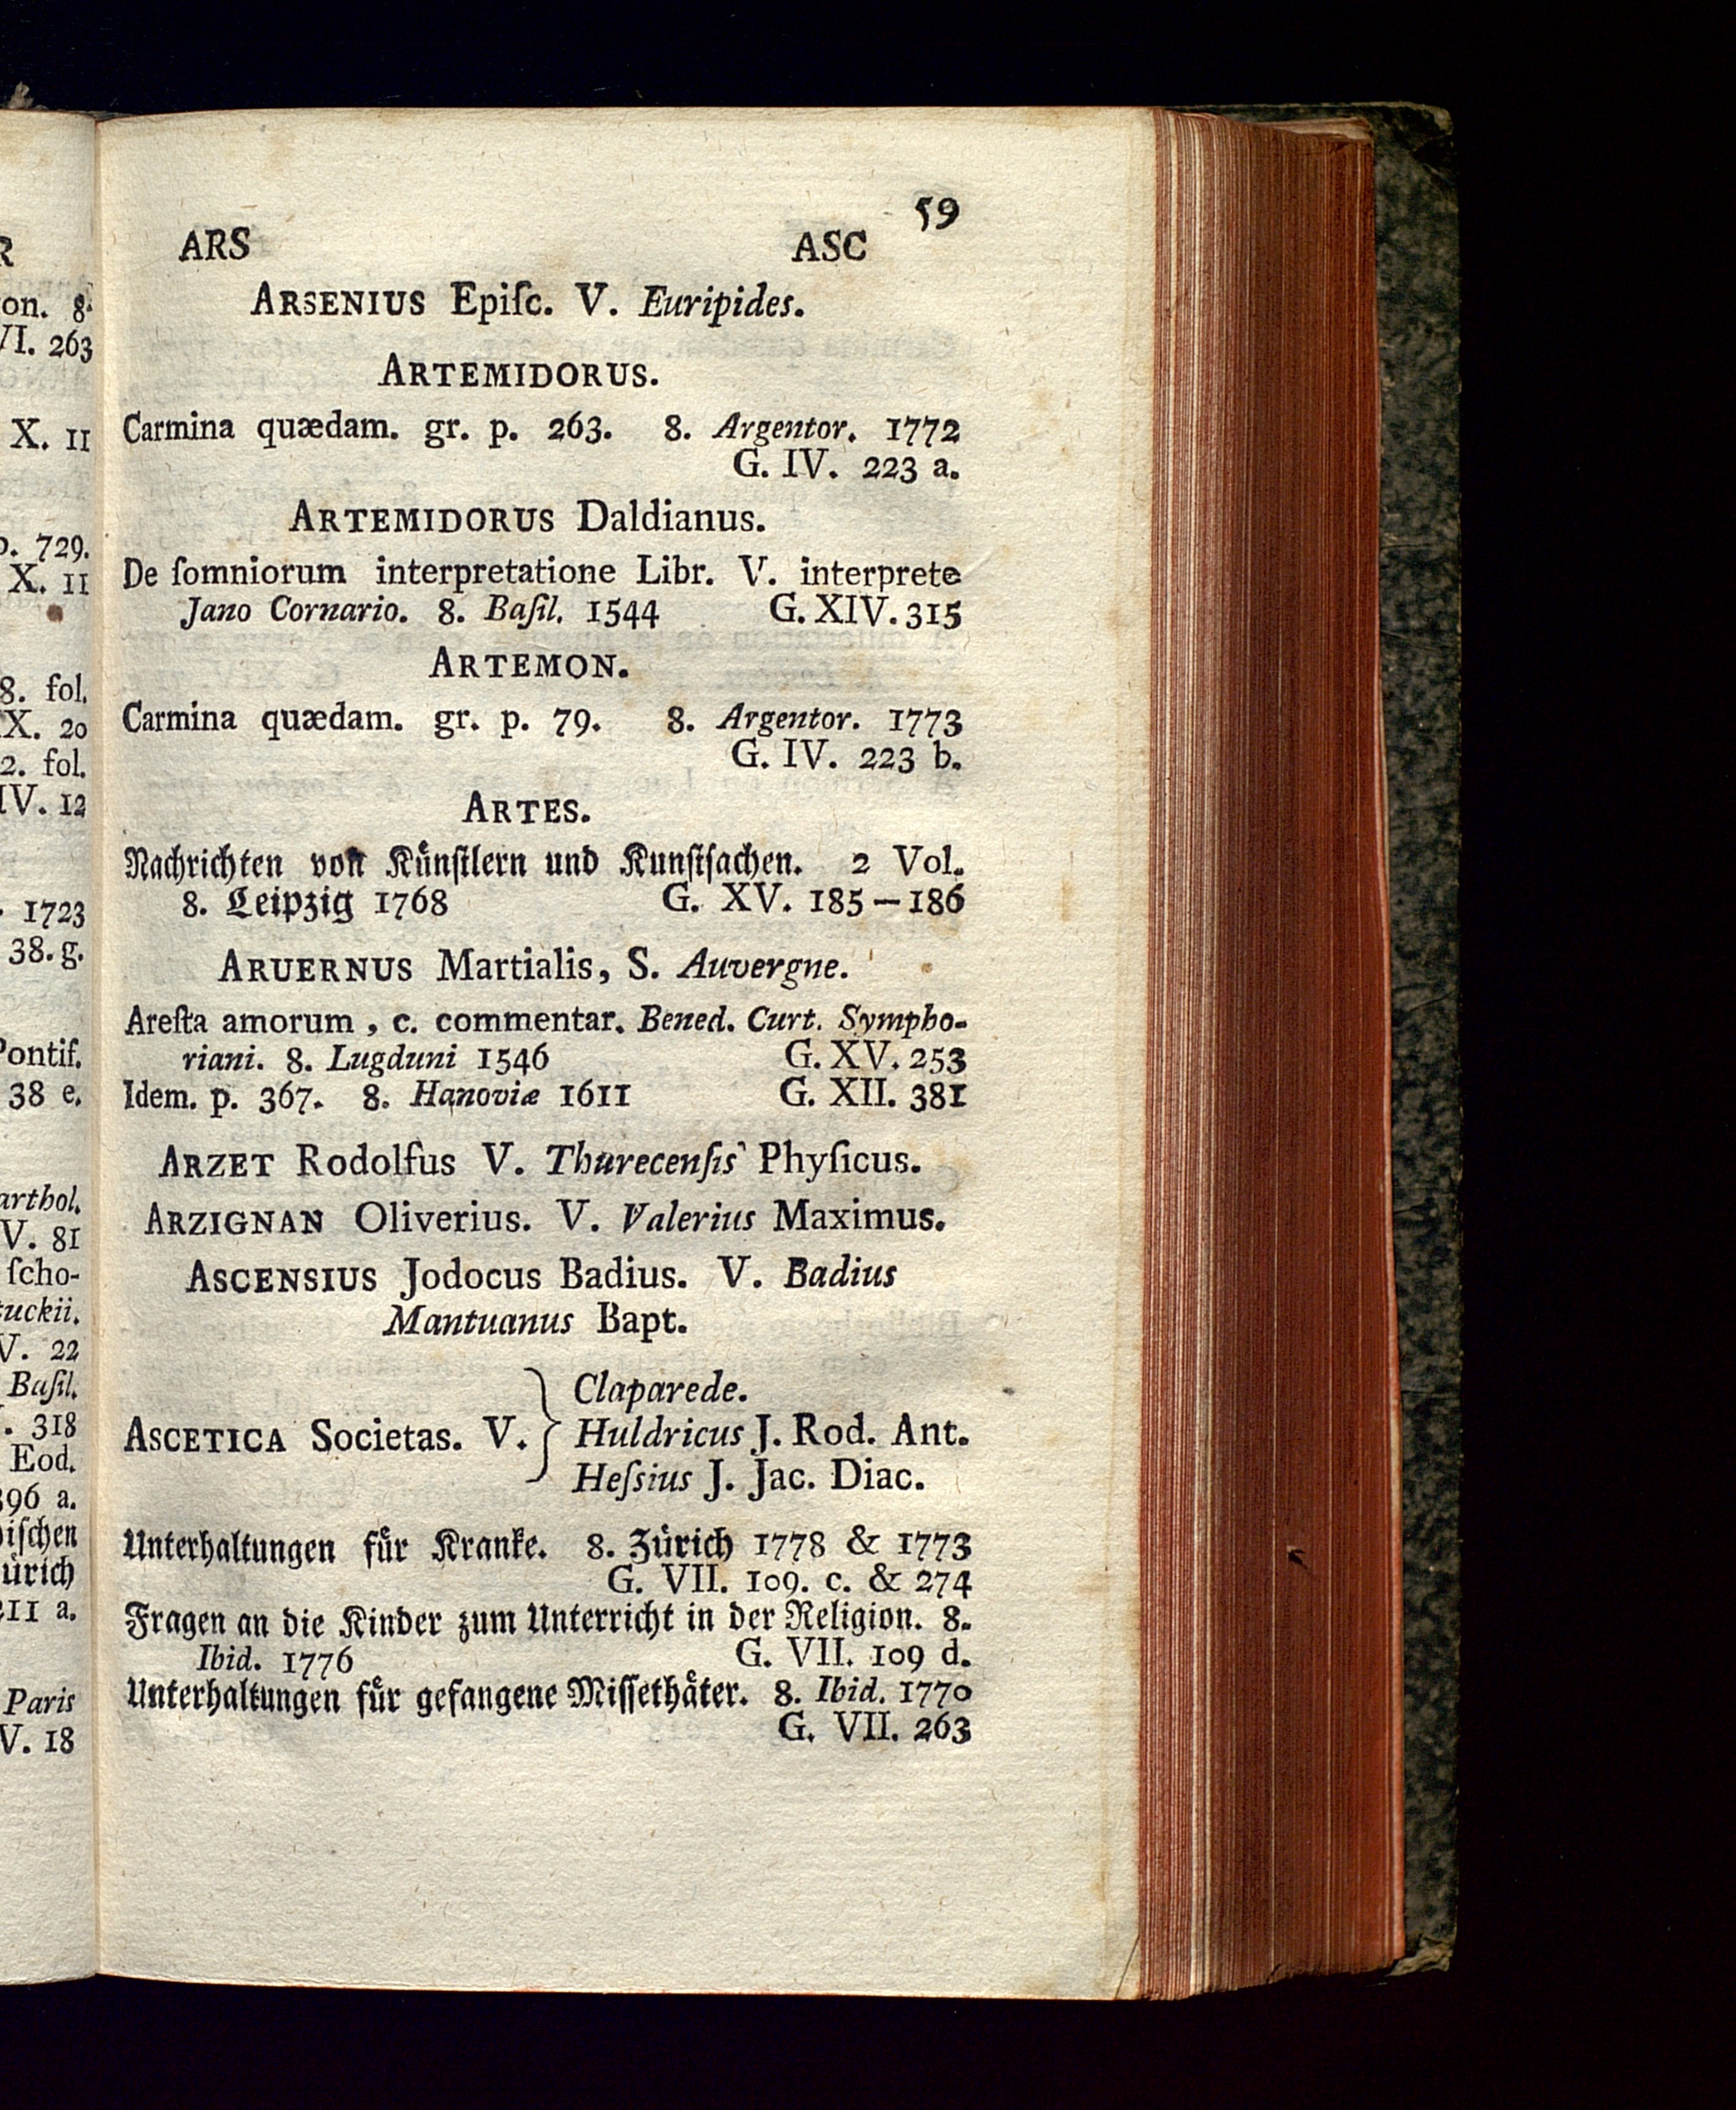 59
ARS ASC
ARSENIUS Epiſc. V. Euripides.
ARTEMIDORUS.
Carmina quædam. gr. p. 263. 8. Argentor. 1772
G. IV. 223 a.
ARTEMIDORUS Daldianus.
De ſomniorum interpretatione Libr. V. interprete
Jano Cornario. 8. Baſil. 1544 G. XIV. 315
ARTEMON.
Carmina quædam. gr. p. 79. 8. Argentor. 1773
G. IV. 223 b.
ARTES.
Nachrichten von Kuͤnſtlern und Kunſtſachen. 2 Vol.
8. Leipzig 1768 G. XV. 185-186
ARUERNUS Martialis, S. Auvergne.
Areſta amorum, c. commentar. Bened. Curt. Sympho-
riani. 8. Lugduni 1546 G. XV. 253
Idem. p. 367. 8. Hanoviæ 1611 G. XII. 381
ARZET Rodolfus V. Thurecenſis Phyſicus.
ARZIGNAN Oliverius. V. Valerius Maximus.
ASCENSIUS Jodocus Badius. V. Badius
Mantuanus Bapt.
Claparede.
ASCETICA Societas. V. } Huldricus J. Rod. Ant.
Heſsius J. Jac. Diac.
Unterhaltungen fuͤr Kranke. 8. Zürich 1778 & 1773
G. VII. 109. c. & 274
Fragen an die Kinder zum Unterricht in der Religion. 8.
Ibid. 1776 G. VII. 109 d.
Unterhaltungen fuͤr gefangene Miſſethaͤter. 8. Ibid. 1770
G. VII. 263